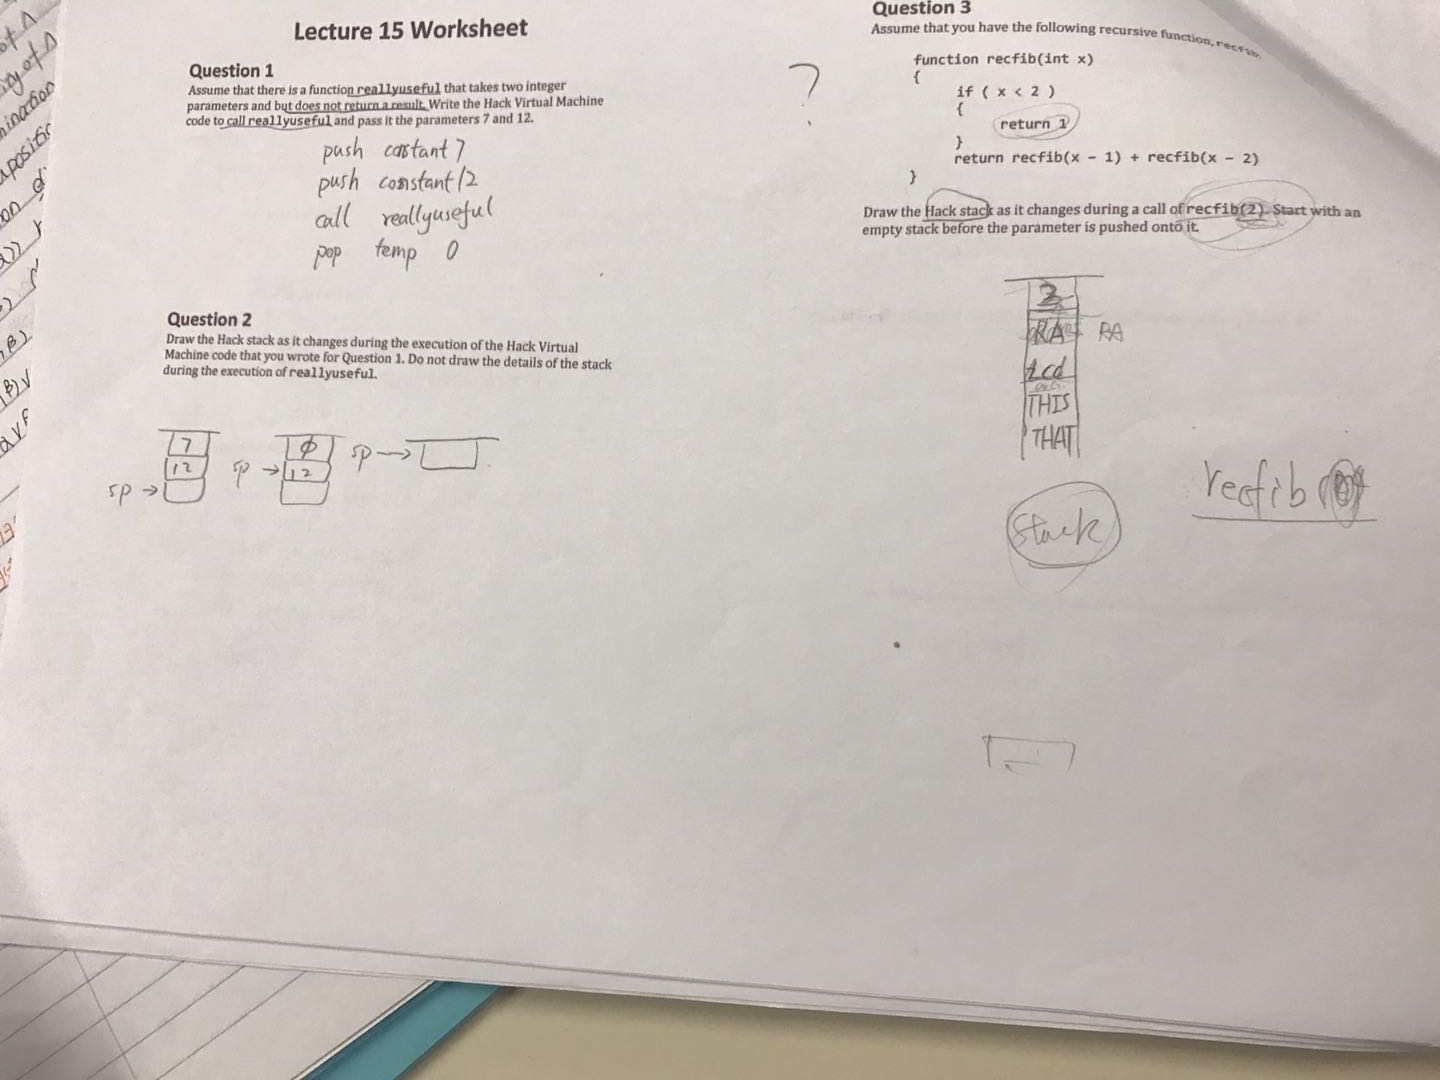 Lecture 15 Worksheet
Question 1
Assume that there is a function reallyuseful that takes two integer
parameters and but does not return a result. Write the Hack Virtual Machine
code to call reallyuseful and pass it the parameters 7 and 12.
push constant 7
push constant 12
call reallyuseful
pop temp 0
Question 2
Draw the Hack stack as it changes during the execution of the Hack Virtual
Machine code that you wrote for Question 1. Do not draw the details of the stack
during the execution of reallyuseful.
7
12
sp →
0
sp → 12
sp →
?
Question 3
Assume that you have the following recursive function, recfib.
function recfib(int x)
{
if ( x < 2 )
{
return 1
}
return recfib(x - 1) + recfib(x - 2)
}
Draw the Hack stack as it changes during a call of recfib(2). Start with an
empty stack before the parameter is pushed onto it.
2
RA RA
THIS
THAT
stack
recfib